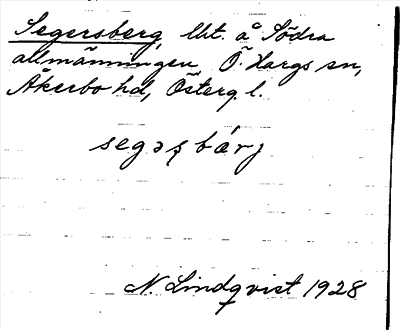 Segersberg, lht. å Södra
allmänningen Ö. Hargs sn,
Åkerbo hd, Österg. l.
segəʂbárj
N. Lindqvist 1928